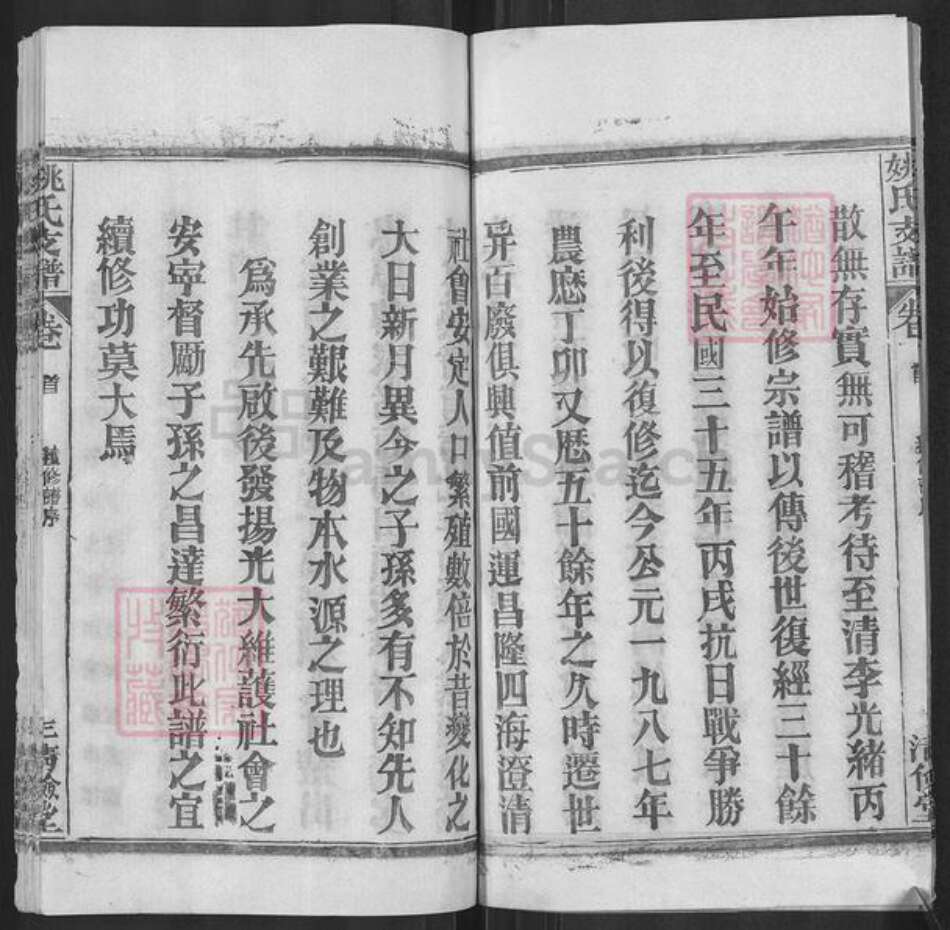 姚氏支譜 卷 首
散無存實無可稽考待至清李光緒丙
午年始修宗譜以傳後世復經三十餘
年至民國三十五年丙戌抗日戰爭勝
利後得以復修迄今公元一九八七年
農曆丁卯又歷五十餘年之久時遷世
异百廢俱興值前國運昌隆四海澄清
社會安定人口繁殖數倍於昔變化之
大日新月異今之子孫多有不知先人
創業之艱難及物本水源之理也
爲承先啟後發揚光大維護社會之
安寧督勵子孫之昌達繁衍此譜之宜
續修功莫大焉
姚氏支譜 卷 首 修譜序